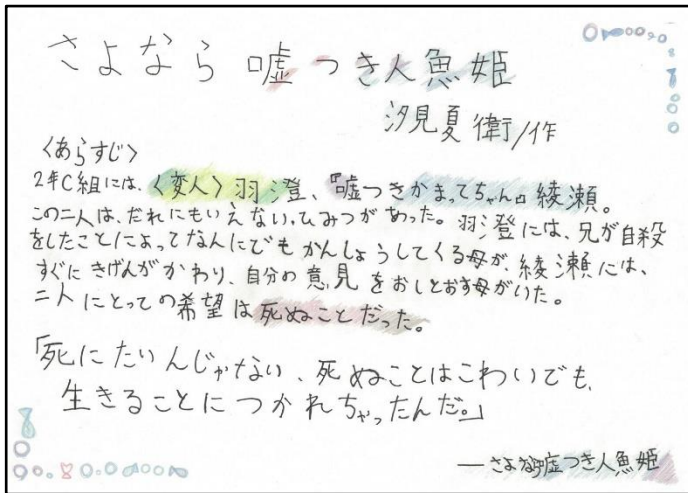 さよなら嘘つき人魚姫
汐見夏衛/作
〈あらすじ〉
2年C組には、〈変人〉羽澄、『嘘つきかまってちゃん』綾瀬。
この二人は、だれにもいえない、ひみつがあった。羽澄には、兄が自殺
をしたことによってなんにでもかんしょうしてくる母が、綾瀬には、
すぐにきげんがかわり、自分の意見をおしとおす母がいた。
二人にとっての希望は死ぬことだった。
「死にたいんじゃない、死ぬことはこわいでも、
生きることにつかれちゃったんだ。」
―さよなら嘘つき人魚姫